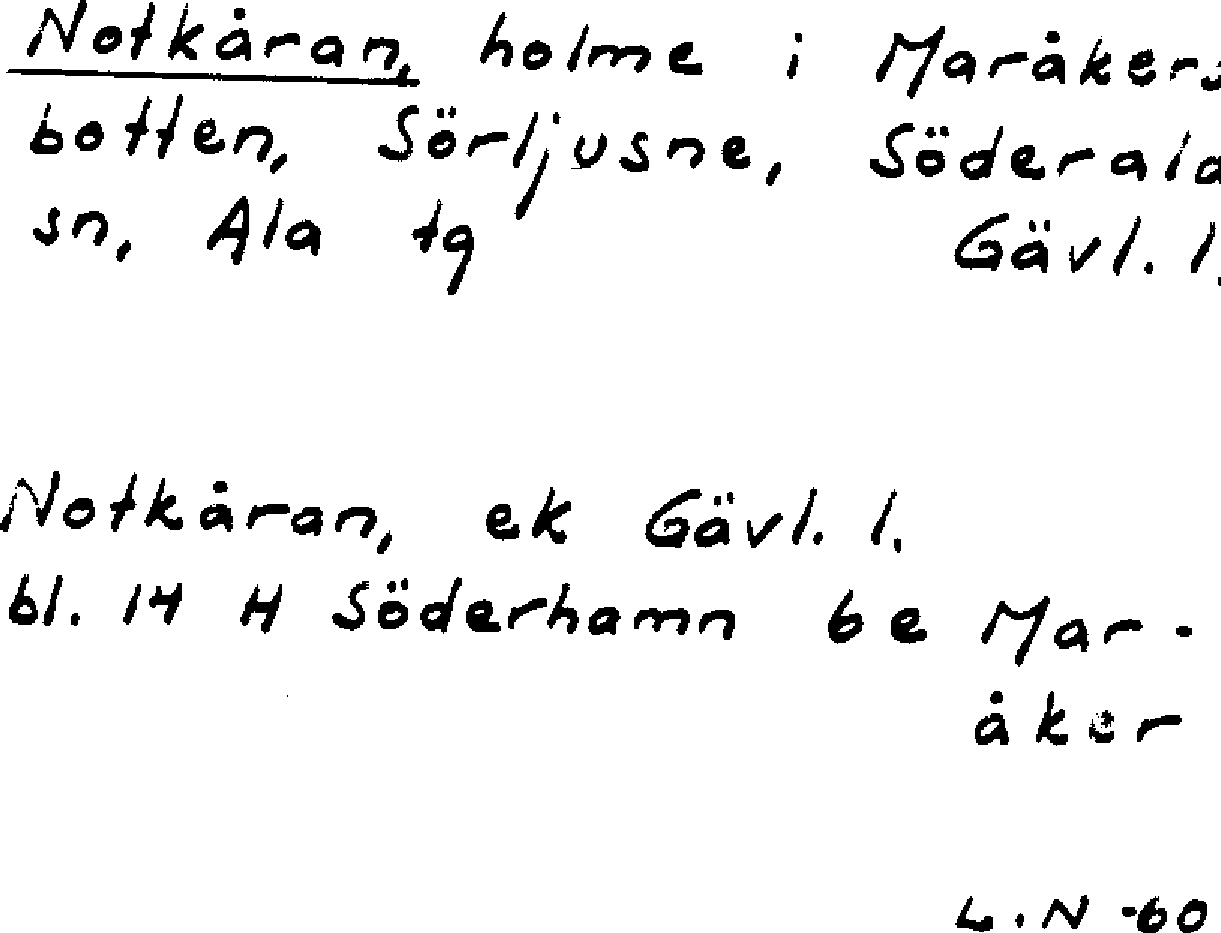 Notkåran, holme i Maråkers
botten, Sörljusne, Söderala
sn, Ala tg Gävl. l.
Notkåran, ek Gävl. l.
bl. 14 H Söderhamn 6 e Mar-
åker
L.N -60